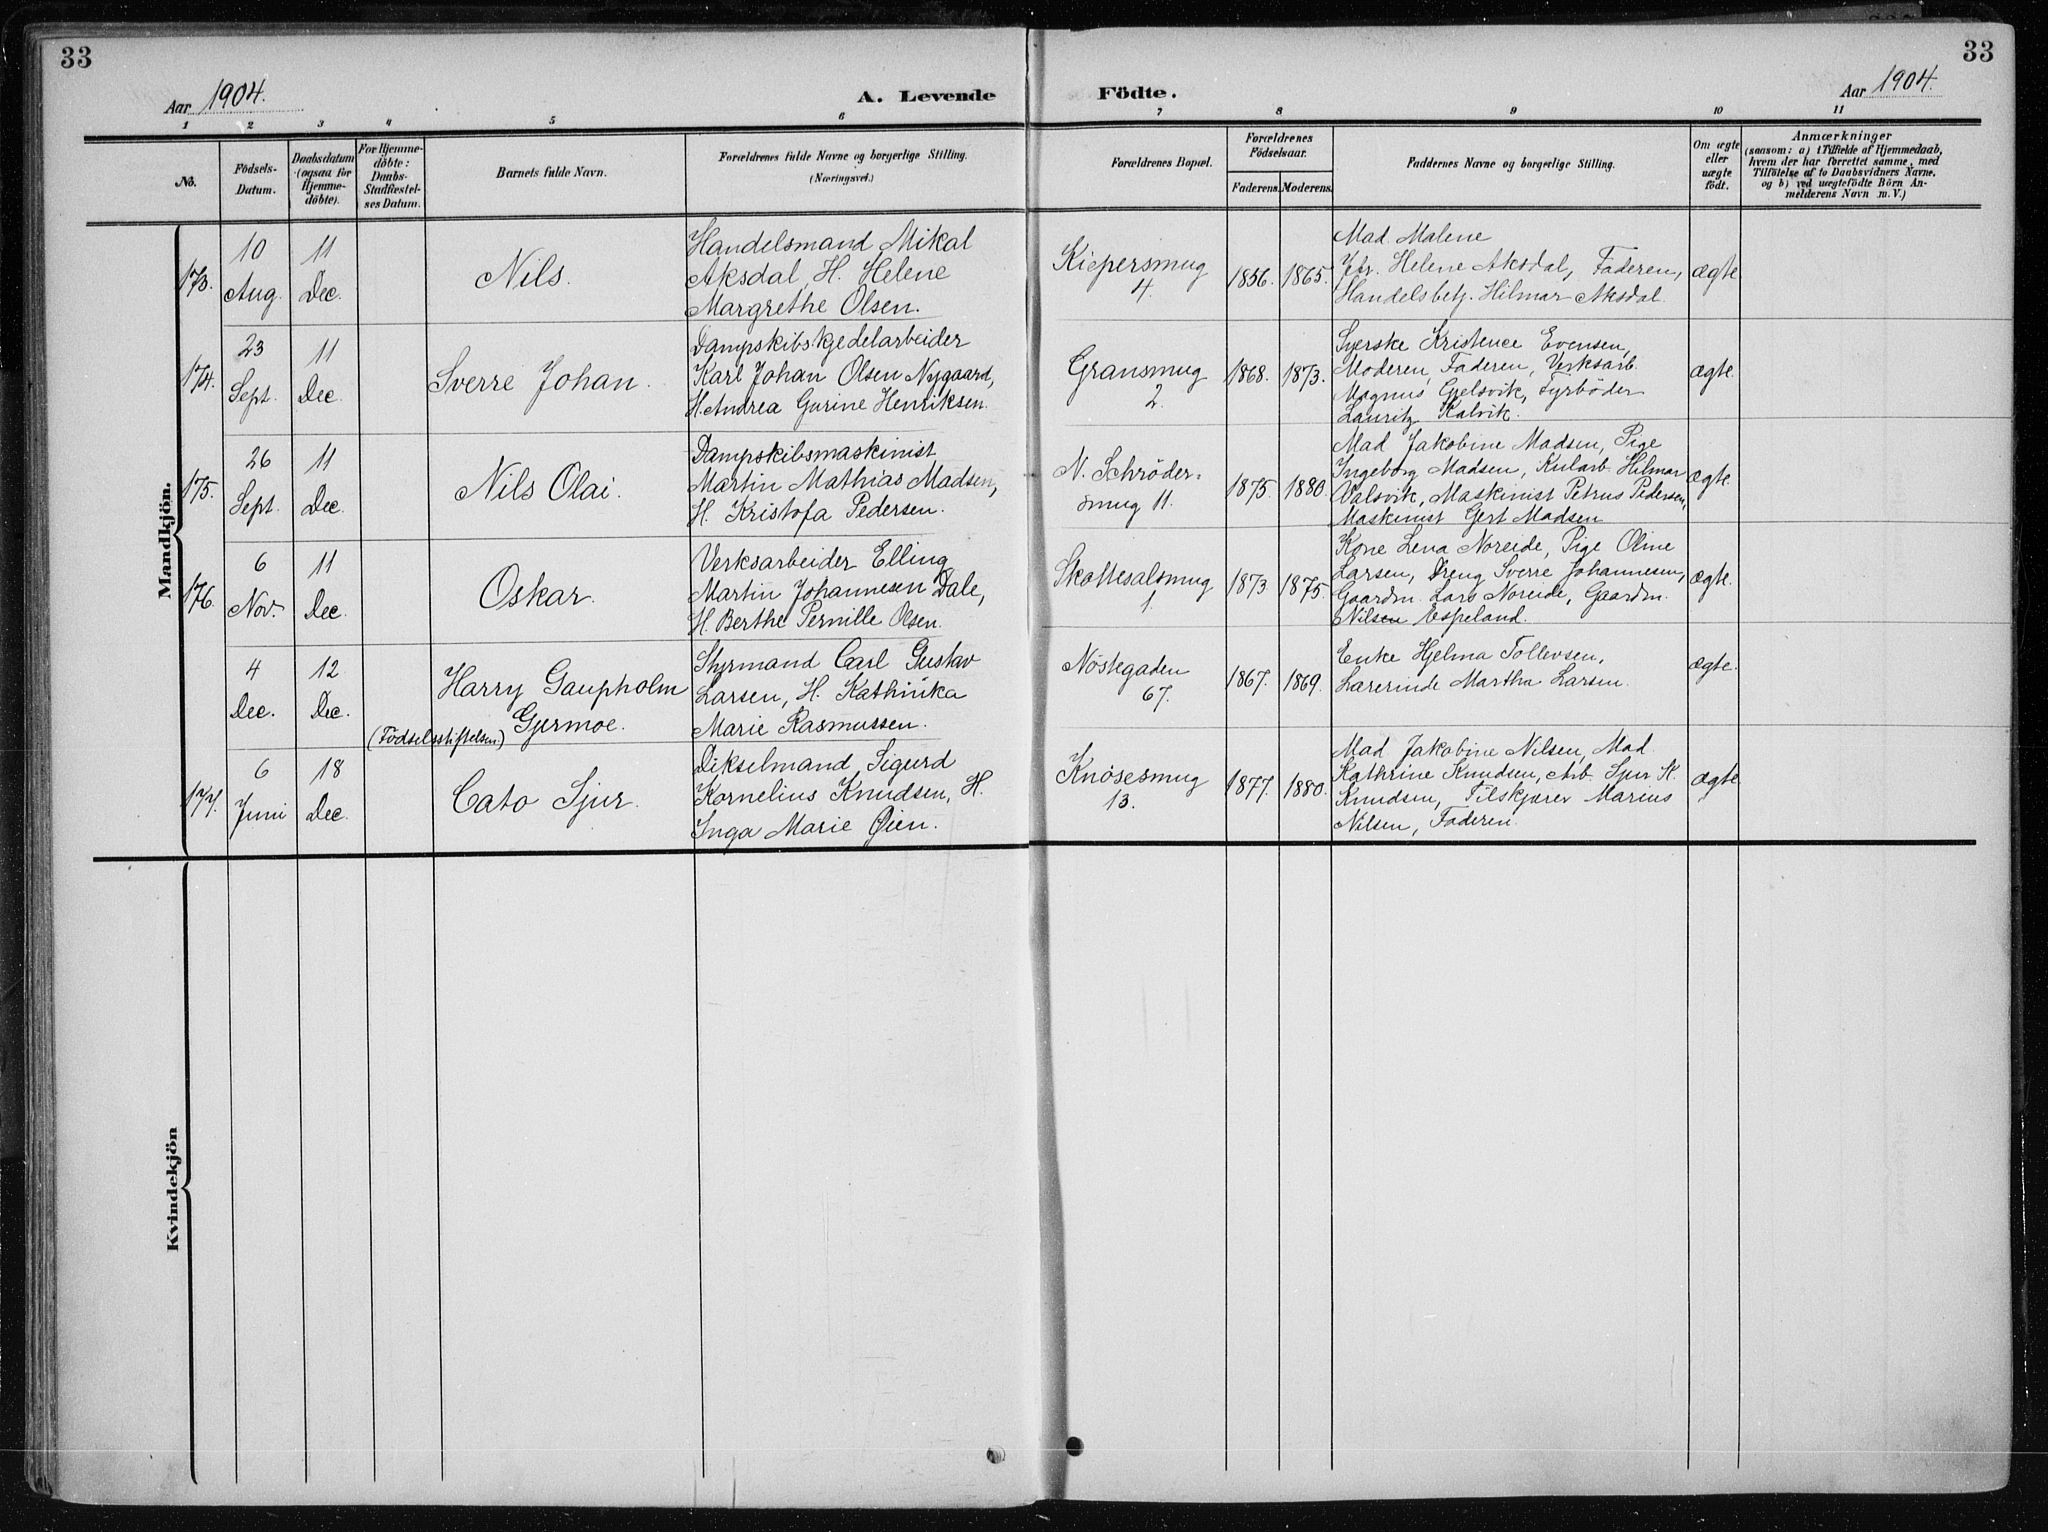 33
33
Aar 1904.
A. Levende
Födte.
Aar 1904.
1 2 3 4 5 6 7 8 9 10 11
No.
Födsels-
Datum.
Daabsdatum
(ogsaa for
Hjemme-
döbte).
For Hjemme-
döbte:
Daabs-
Stadfæstel-
ses Datum.
Barnets fulde Navn.
Forældrenes fulde Navne og borgerlige Stilling.
(Næringsvei.)
Forældrenes Bopæl.
Forældrenes
Födselsaar.
Faderens.
Moderens.
Faddernes Navne og borgerlige Stilling.
Om ægte
eller
uægte
født.
Anmærkninger
(saasom: a) i Tilfælde af Hjemmedaab,
hvem der har forrettet samme, med
Tilföielse af to Daabsvidners Navne,
og b) ved uægtefödte Börn An-
melderens Navn m. V.)
Mandkjön.
173.
10
Aug.
11
Dec.
Nils.
Handelsmand Mikal
Aksdal, H. Helene
Margrethe Olsen.
Kiepersmug
4.
1856.
1865.
Mad. Malene
Jfr. Helene Aksdal, Faderen,
Handelsbetj. Hilmar Aksdal.
ægte
174.
23
Sept.
11
Dec.
Sverre Johan.
Dampskibskjedelarbeider
Karl Johan Olsen Nygaard,
H. Andrea Gurine Henriksen.
Gransmug
2.
1868.
1873.
Syerske Kristence Evensen,
Moderen, Faderen, Verksarb.
Magnus Gjelsvik, Fyrböder
Lauritz Kalvik.
ægte.
175.
26
Sept.
11
Dec.
Nils Olai.
Dampskibsmaskinist
Martin Mathias Madsen,
H. Kristofa Pedersen.
N. Schröder-
smug 11.
1875.
1880.
Mad Jakobine Madsen, Pige
Ingeborg Madsen, Kularb. Hilmar
Valsvik, Maskinist Petrus Pedersen,
Maskinist Gert Madsen
ægte.
176.
6
Nov.
11
Dec.
Oskar.
Verksarbeider Elling
Martin Johannesen Dale,
H. Berthe Pernille Olsen.
Skottesalsmug
1.
1873.
1875.
Kone Lena Noreide, Pige Oline
Larsen, Dreng Sverre Johannesen,
Gaardm. Lars Noreide, Gaardm.
Nilsen Espeland.
ægte.
4
Dec.
12
Dec.
(Födselsstiftelsen)
Harry Gaupholm
Gjermoe.
Styrmand Carl Gustav
Larsen, H. Kathinka
Marie Rasmussen.
Nöstegaden
67.
1867.
1869.
Enke Hjelma Tollevsen,
Lærerinde Martha Larsen.
ægte.
177.
6
Juni
18
Dec.
Cato Sjur.
Dikselmand Sigurd
Kornelius Knudsen, H.
Inga Marie Øien.
Knösesmug
13.
1877.
1880.
Mad Jakobine Nilsen, Mad.
Kathrine Knudsen, Arb. Sjur K.
Knudsen, Filskjærer Marius
Nilsen, Faderen.
ægte
Kvindekjön